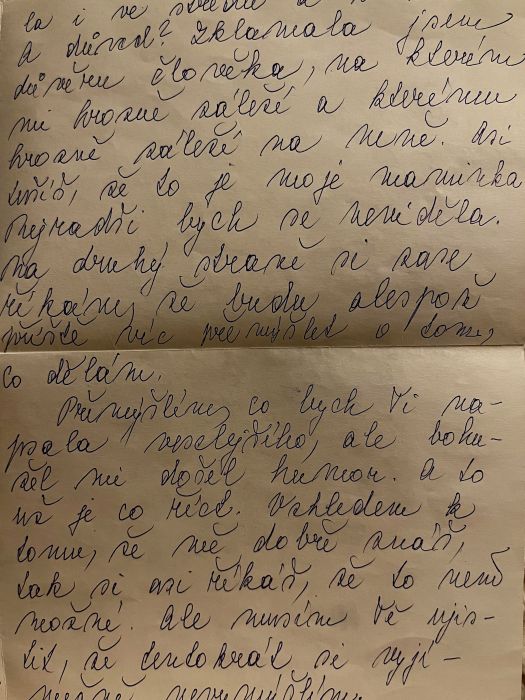 la i ve středu a
A důvod? Zklamala jsem
důvěru člověka, na kterém
mi hrozně záleží a kterému
hrozně záleží na mně. Asi
tušíš, že to je moje maminka
Nejradši bych se neviděla.
Na druhý straně si zase
říkám, že budu alespoň
příště víc přemýšlet o tom,
co dělám.
Přemýšlím, co bych Ti na-
psala veselejšího, ale bohu-
žel mi došel humor. A to
už je co říct. Vzhledem k
tomu, že mě dobře znáš,
tak si asi říkáš, že to není
možné. Ale musím Tě ujis-
tit, že tentokrát si výji-
mečně nevymýšlím.